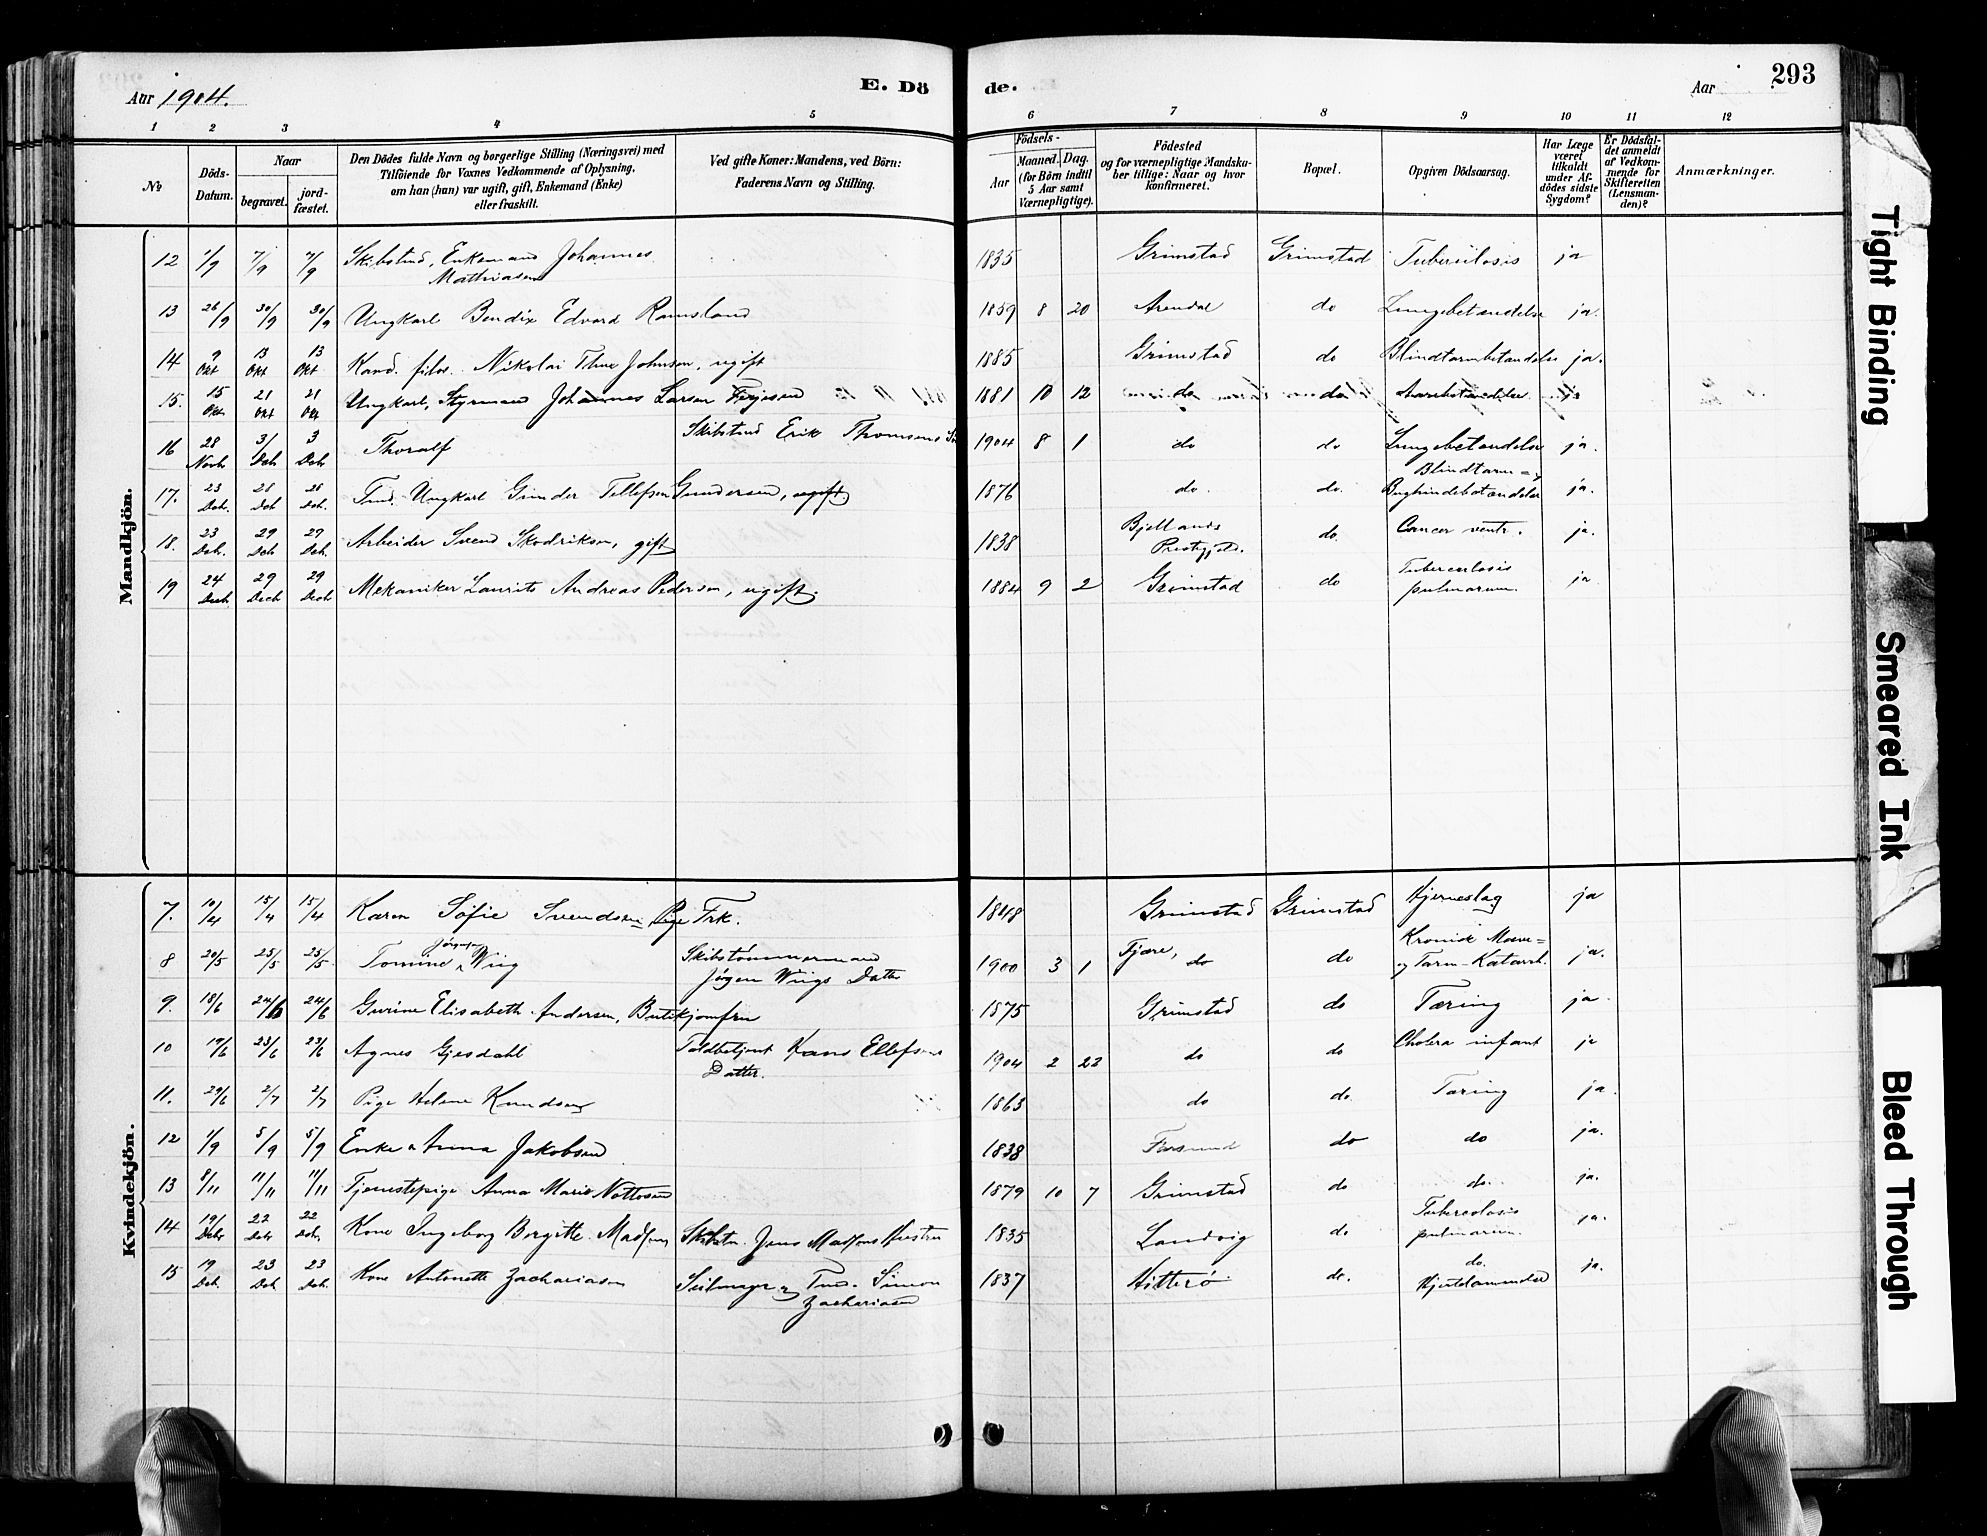 Aar 1904.
E. Dö
de.
Aar
293
1 2 3 4 5 6 7 8 9 10 11 12
№
Döds-Datum.
Naar
begravet.
jord-fæstet.
Den Dödes fulde Navn og borgerlige Stilling (Næringsvei) med
Tilföiende for Voxnes Vedkommende af Oplysning,
om han (hun) var ugift, gift, Enkemand (Enke)
eller fraskilt.
Ved gifte Koner: Mandens, ved Börn:
Faderens Navn og Stilling.
Födsels-
Aar
Maaned. Dag.
(for Börn indtil
5 Aar samt
Værnepligtige).
Födested
og for værnepligtige Mandska-
ber tillige: Naar og hvor
konfirmeret.
Bopæl.
Opgiven Dödsaarsag.
Har Læge
været
tilkaldt
under Af-
dödes sidste
Sygdom?
Er Dödsfal-
det anmeldt
af Vedkom-
mende for
Skifteretten
(Lensman-
den)?
Anmærkninger.
Mandkjön.
12 1/9 7/9 7/9 Skibstmd, Enkemand Johannes Mathiasen 1835 Grimstad Grimstad Tuberculosis ja
13 26/9 30/9 30/9 Ungkarl Bendix Edvard Ramsland 1859 8 20 Arendal do Lungebetændelse ja.
14 9 Okt 13 Okt 13 Okt. Kand. filos. Nikolai Johnsen, ugift 1885 Grimstad do Blindtarmbetændelse ja.
15. 15 Okt. 21 Okt 21 Okt Ungkarl, Styrmand Johannes Larsen Terjesen 1881 10 12 do do ja
16 28 Novb. 3/ Dcb 3 Dcb Thoralf Skibstmd Erik Thomsens Sön 1904 8 1 do do Lungebetændelse ja.
17. 23 Dcb. 28 Dcb 28 Dcb. Tmd. Ungkarl Gunder Tellefsen Gundersen, ugift. 1876 do. do. Blindtarm- og Bughindebetændelse ja.
18. 23 Dcb. 29 Dcb 29 Dcb. Arbeider Svend Skodriksen, gift 1838 Bjellands Prestgjeld. do. Cancer ventr. ja.
19 24 Decb 29 Decb 29 Decb Mekaniker Laurits Andreas Pedersen, ugift. 1884 9 2 Grimstad do Tuberculosis pulmorum. ja
Kvindekjön.
7. 10/4 15/4 15/4 Karen Sofie Svendsen Pige Frk. 1848 Grimstad Grimstad Hjerneslag ja
8 20/5 25/5 25/5 Tomine Jörgensen Wiig Skibstömmermand Jörgen Wiigs Datter 1900 3 1 Fjære, do do Kronisk Mave- og Tarm-Katarrh. ja.
9. 18/6 24/6 24/6 Gurine Elisabeth Andersen, Butikjomfru 1875 Grimstad do Tæring ja.
10 19/6 23/6 23/6 Agnes Gjesdahl Toldbetjent Hans Ellefsens Datter. 1904 2 23 do do Cholera infant ja
11. 29/6 2/7 2/7 Pige Helene Knudsen 1863 do do. Tæring ja.
12 1/9 5/9 5/9 Enke Anna Jakobsen 1838 Farsund do do ja.
13 8/11 11/11 11/11 Tjenestepige Anna Marie Nottosen 1879 10 7 Grimstad do do. ja.
14 19/ Dcbr 22 Dcbr 22 Dcb. Kone Ingeborg Borgitte Madsen Skibstm. Jens Madsens Hustru 1835 Landvig do Tuberculosis pulmorum. ja.
15 19 Dcb. 23 Dcb 23 Dcb. Kone Antonette Zachariasen Seilmager og Tmd. Simon Zachariasen 1837 Hitterö do. do. Hjertelammelse ja.
Tight Binding
Smeared Ink
Bleed Through